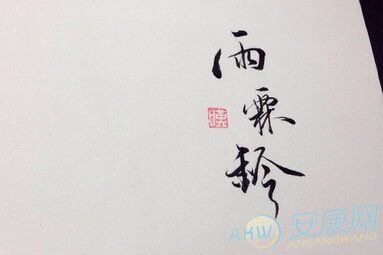 雨霖鈴
AKW 安康网
ANKANGWANG